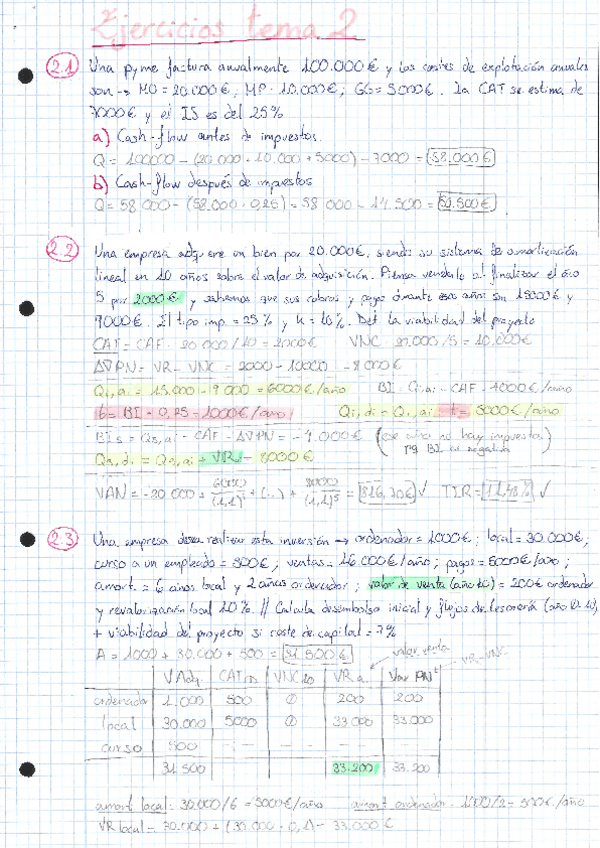 Ejercicios tema 2
2.1 Una pyme factura anualmente 100.000€ y los costes de explotación anuales
son → MO = 20.000€, MP = 10.000€, GG = 5000€. La CAT se estima de
7000€ y el IS es del 25%
a) Cash-flow antes de impuestos
Q = 100000 - (20.000 + 10.000 + 5000) - 7000 = 58.000€
b) Cash-flow después de impuestos
Q = 58000 - (58.000 · 0,25) = 58000 - 14.500 =
2.2 Una empresa adquiere un bien por 20.000€, siendo su sistema de amortización
lineal en 10 años sobre el valor de adquisición. Piensa venderlo al finalizar el año
5 por 2000€ y estiman que sus cobros y pagos durante esos años son 15000€ y
9000€. El tipo imp = 25% y k = 10%. Det la viabilidad del proyecto
CAT = CAF = 20.000/10 = 2000€ VNC = 20.000/5 = 10.000€
ΔVPN = VR - VNC = 2000 - 10000 = -8000€
Qi,ai = 15.000 - 9000 = 6000€/año BI = Qi,ai - CAF = 4000€/año
t = BI · 0,25 = 1000€/año Qi,di = Qi,ai - t = 5000€/año
BI5 = Q5,ai - CAF - ΔVPN = -4.000€ (ese año no hay impuestos
pq BI es negativa)
Q5,di = Q5,ai + VR = 8000€
VAN = -20.000 + /(1,1)¹ + (..) + 8000/(1,1)⁵ = 816,70€ ✓ TIR = 11,48% ✓
2.3 Una empresa desea realizar esta inversión → ordenador = 1000€; local = 30.000€;
curso a un empleado = 500€; ventas = 16000€/año; pagos = 5000€/año;
amort. = 6 años local y 2 años ordenador; valor de venta (año 10) = 200€ ordenador
y revalorización local 10%. // Calcula desembolso inicial y flujos de tesorería
+ viabilidad del proyecto si coste de capital = 7%
A = 1000 + 30.000 + 500 = 31.500€
valor venta
VR-VNC
VAdq CAT VNC10 VR Var PN
ordenador 1.000 500 0 200 200
local 30.000 5000 0 33.000 33.000
curso 500 - - - -
31.500 33.200 33.200
amort local = 30.000/6 = 5000€/año amort ordenador = 1000/2 = 500€/año
VR local = 30.000 + (30.000 · 0,1) = 33.000€